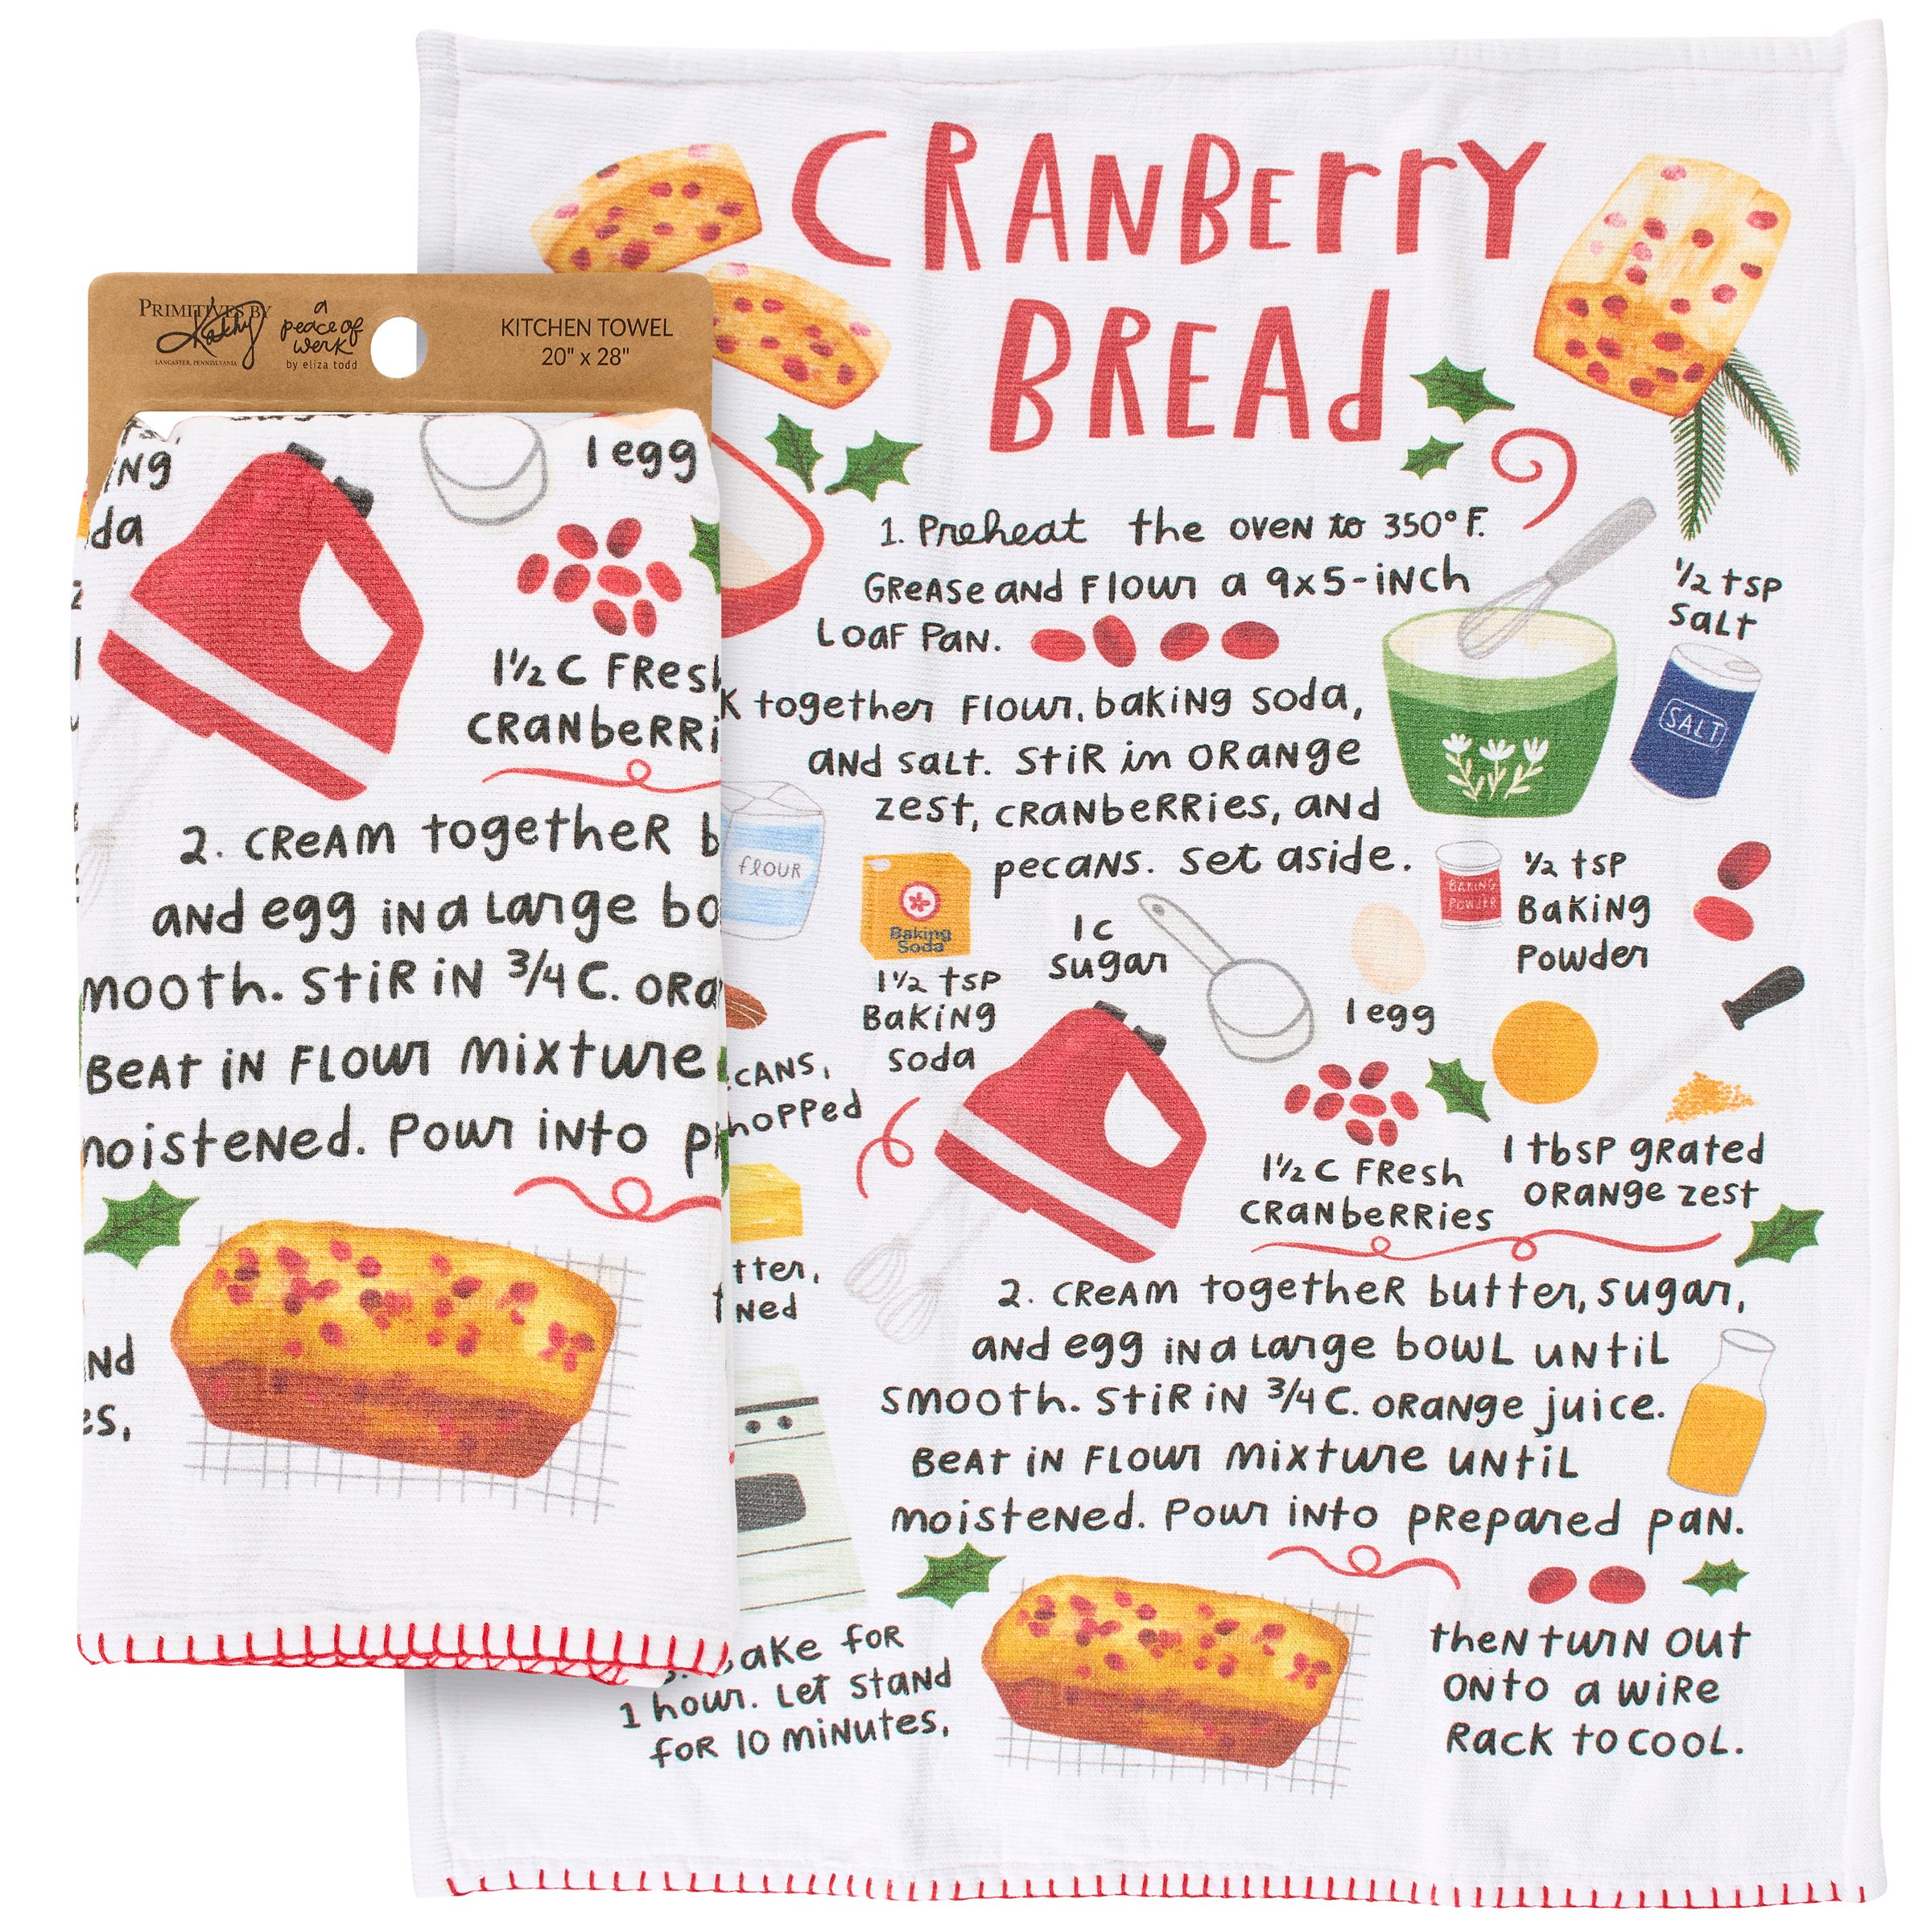 PRIMITIVES BY
Kathy
LANCASTER, PENNSYLVANIA
a
peace of
werk
by eliza todd
KITCHEN TOWEL
20" x 28"
1 egg
1½ C FRESH
CRANBERRI
2. CREAM TOGETHER b
AND EGG IN A LARGE bo
MOOTH. STIR IN ¾ C. ORA
BEAT IN FLOUR MIXTURE
MOISTENED. POUR INTO PR
ND
ES,
CRANBERRY
BREAD
1. Preheat the OVEN to 350° F.
GREASE AND FLOUR a 9x5-INCH
LOAF PAN.
K together FLOUR, BAKING SODA,
AND SALT. STIR in ORANGE
ZEST, CRANBERRIES, AND
PECANS. Set aside.
½ TSP
SALT
SALT
FLOUR
Baking
Soda
1½ TSP
BAKING
SODA
1 C
SUGAR
1 egg
BAKING
POWDER
½ TSP
BAKING
POWDER
CANS,
HOPPED
1½ C FRESH
CRANBERRIES
1 TBSP GRATED
ORANGE ZEST
TTER,
NED
2. CREAM TOGETHER BUTTER, SUGAR,
AND EGG IN A LARGE BOWL UNTIL
SMOOTH. STIR IN ¾ C. ORANGE JUICE.
BEAT IN FLOUR MIXTURE UNTIL
MOISTENED. POUR INTO PREPARED PAN.
AKE FOR
1 HOUR. LET STAND
FOR 10 MINUTES,
THEN TURN OUT
ONTO A WIRE
RACK TO COOL.